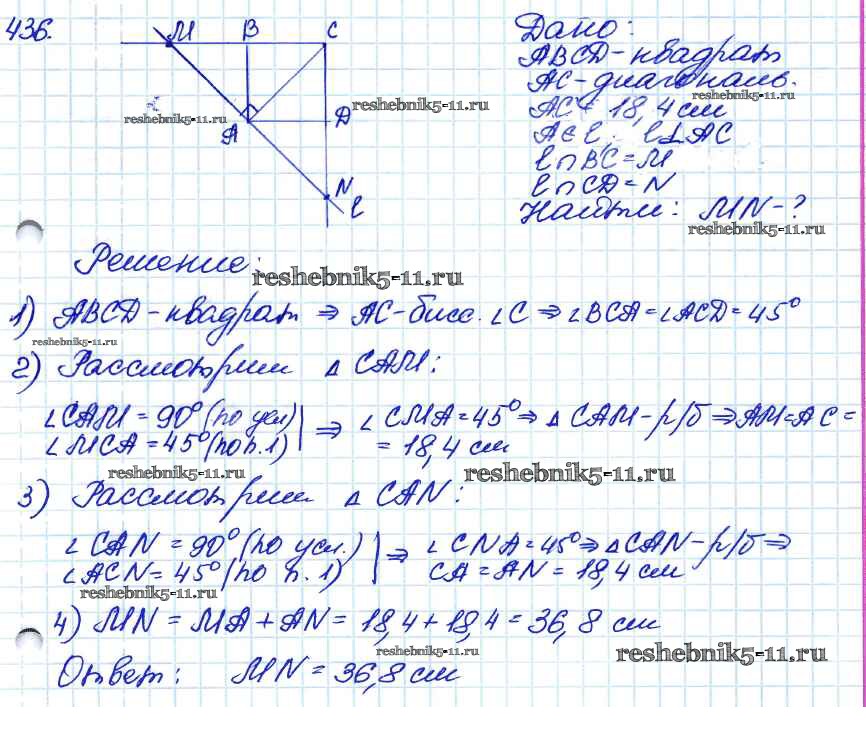 436.
M B C
A D
N
l
Дано:
ABCD - квадрат
AC - диагональ.
AC = 18,4 см
A∈l; l⊥AC
l∩BC = M
l∩CD = N
Найти: MN - ?
reshebnik5-11.ru
reshebnik5-11.ru
reshebnik5-11.ru
reshebnik5-11.ru
Решение:
reshebnik5-11.ru
1) ABCD - квадрат ⇒ AC - бисс. ∠C ⇒ ∠BCA = ∠ACD = 45°
reshebnik5-11.ru
2) Рассмотрим △ CAM:
∠CAM = 90° (по усл) | ⇒ ∠CMA = 45° ⇒ △ CAM - р/б ⇒ AM = AC =
∠MCA = 45° (по п. 1) | = 18,4 см
reshebnik5-11.ru reshebnik5-11.ru
3) Рассмотрим △ CAN:
∠CAN = 90° (по усл.) | ⇒ ∠CNA = 45° ⇒ △CAN - р/б ⇒
∠ACN = 45° (по п. 1) | CA = AN = 18,4 см
reshebnik5-11.ru
4) MN = MA + AN = 18,4 + 18,4 = 36,8 см
reshebnik5-11.ru reshebnik5-11.ru
Ответ: MN = 36,8 см